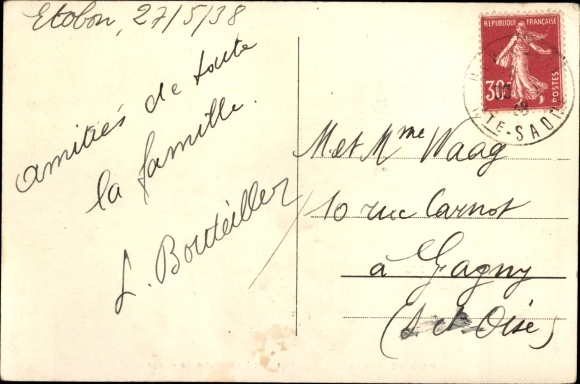 Etobon, 27/5/38
amitiés de toute
la famille.
L. Bouteiller
REPUBLIQUE FRANÇAISE
30c
POSTES
HTE-SAONE
M. et Mme Waag
10 rue Carnot
à Gagny
(S. et Oise)